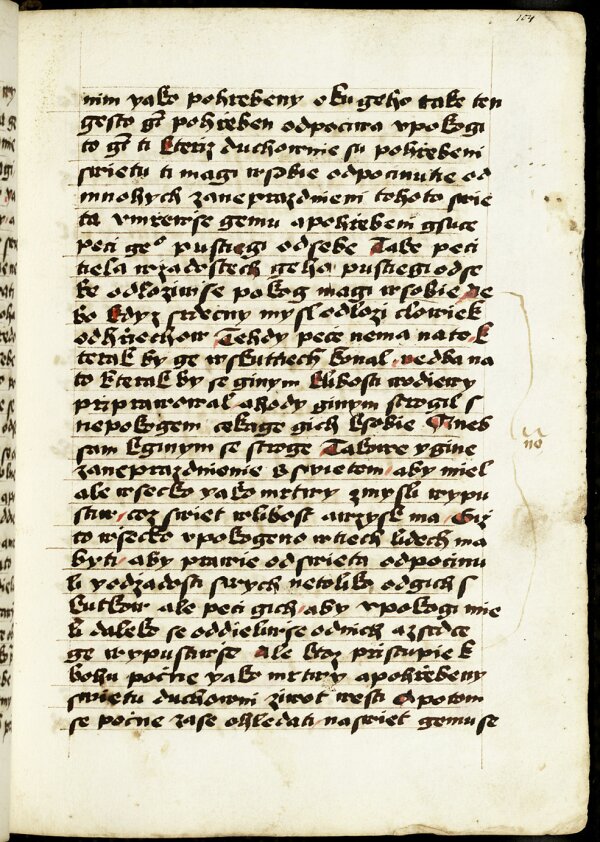 104
nim yako pohrebeny okugeho take ten
gesto gt pohreben odpociwa vpokogi
to gt ti kteriz duchownie su pohrebeni
swietu ti magi wsobie odpocinutie od
mnohych zaneprazdnieni tohoto swie
ta vmrewse gemu apohrebeni gsuce
peci geo pustiegi odsebe Take peci
tiela wzadostech geho pustiegi odse
be odloziwse pokog magi wsobie Ne
bo kdyz srdecny mysl odlozi clowiek
odhriechow Tehdy pece nema nato k
terak by ge wskutciech konal nedba na
to kterak by se ginym klibosti wodiewy
priprawowal akody ginym strogil s
nepokogem cekage gich ksobie
sam kginym se stroge Takowe ygine
zaneprazdnienie s swietem aby miel
ale wsecko yako mrtwy zmysli wypu
stiw coz swiet wlibost awzysk ma
to wsecko vpokogeno wtiech lidech ma
byti aby prawie odswieta odpocinu
li yodzadosti swych netoliko odgich s
kutkow ale peci gich aby vpokogi mie
li daleko se oddieliwse odnich azsrdce
ge wypustiwse Ale ktoz pristupie k
bohu pocne yako mrtwy apohrebeny
swietu duchowni ziwot westi Apotom
se pocne zase ohledati naswiet gemuse
no